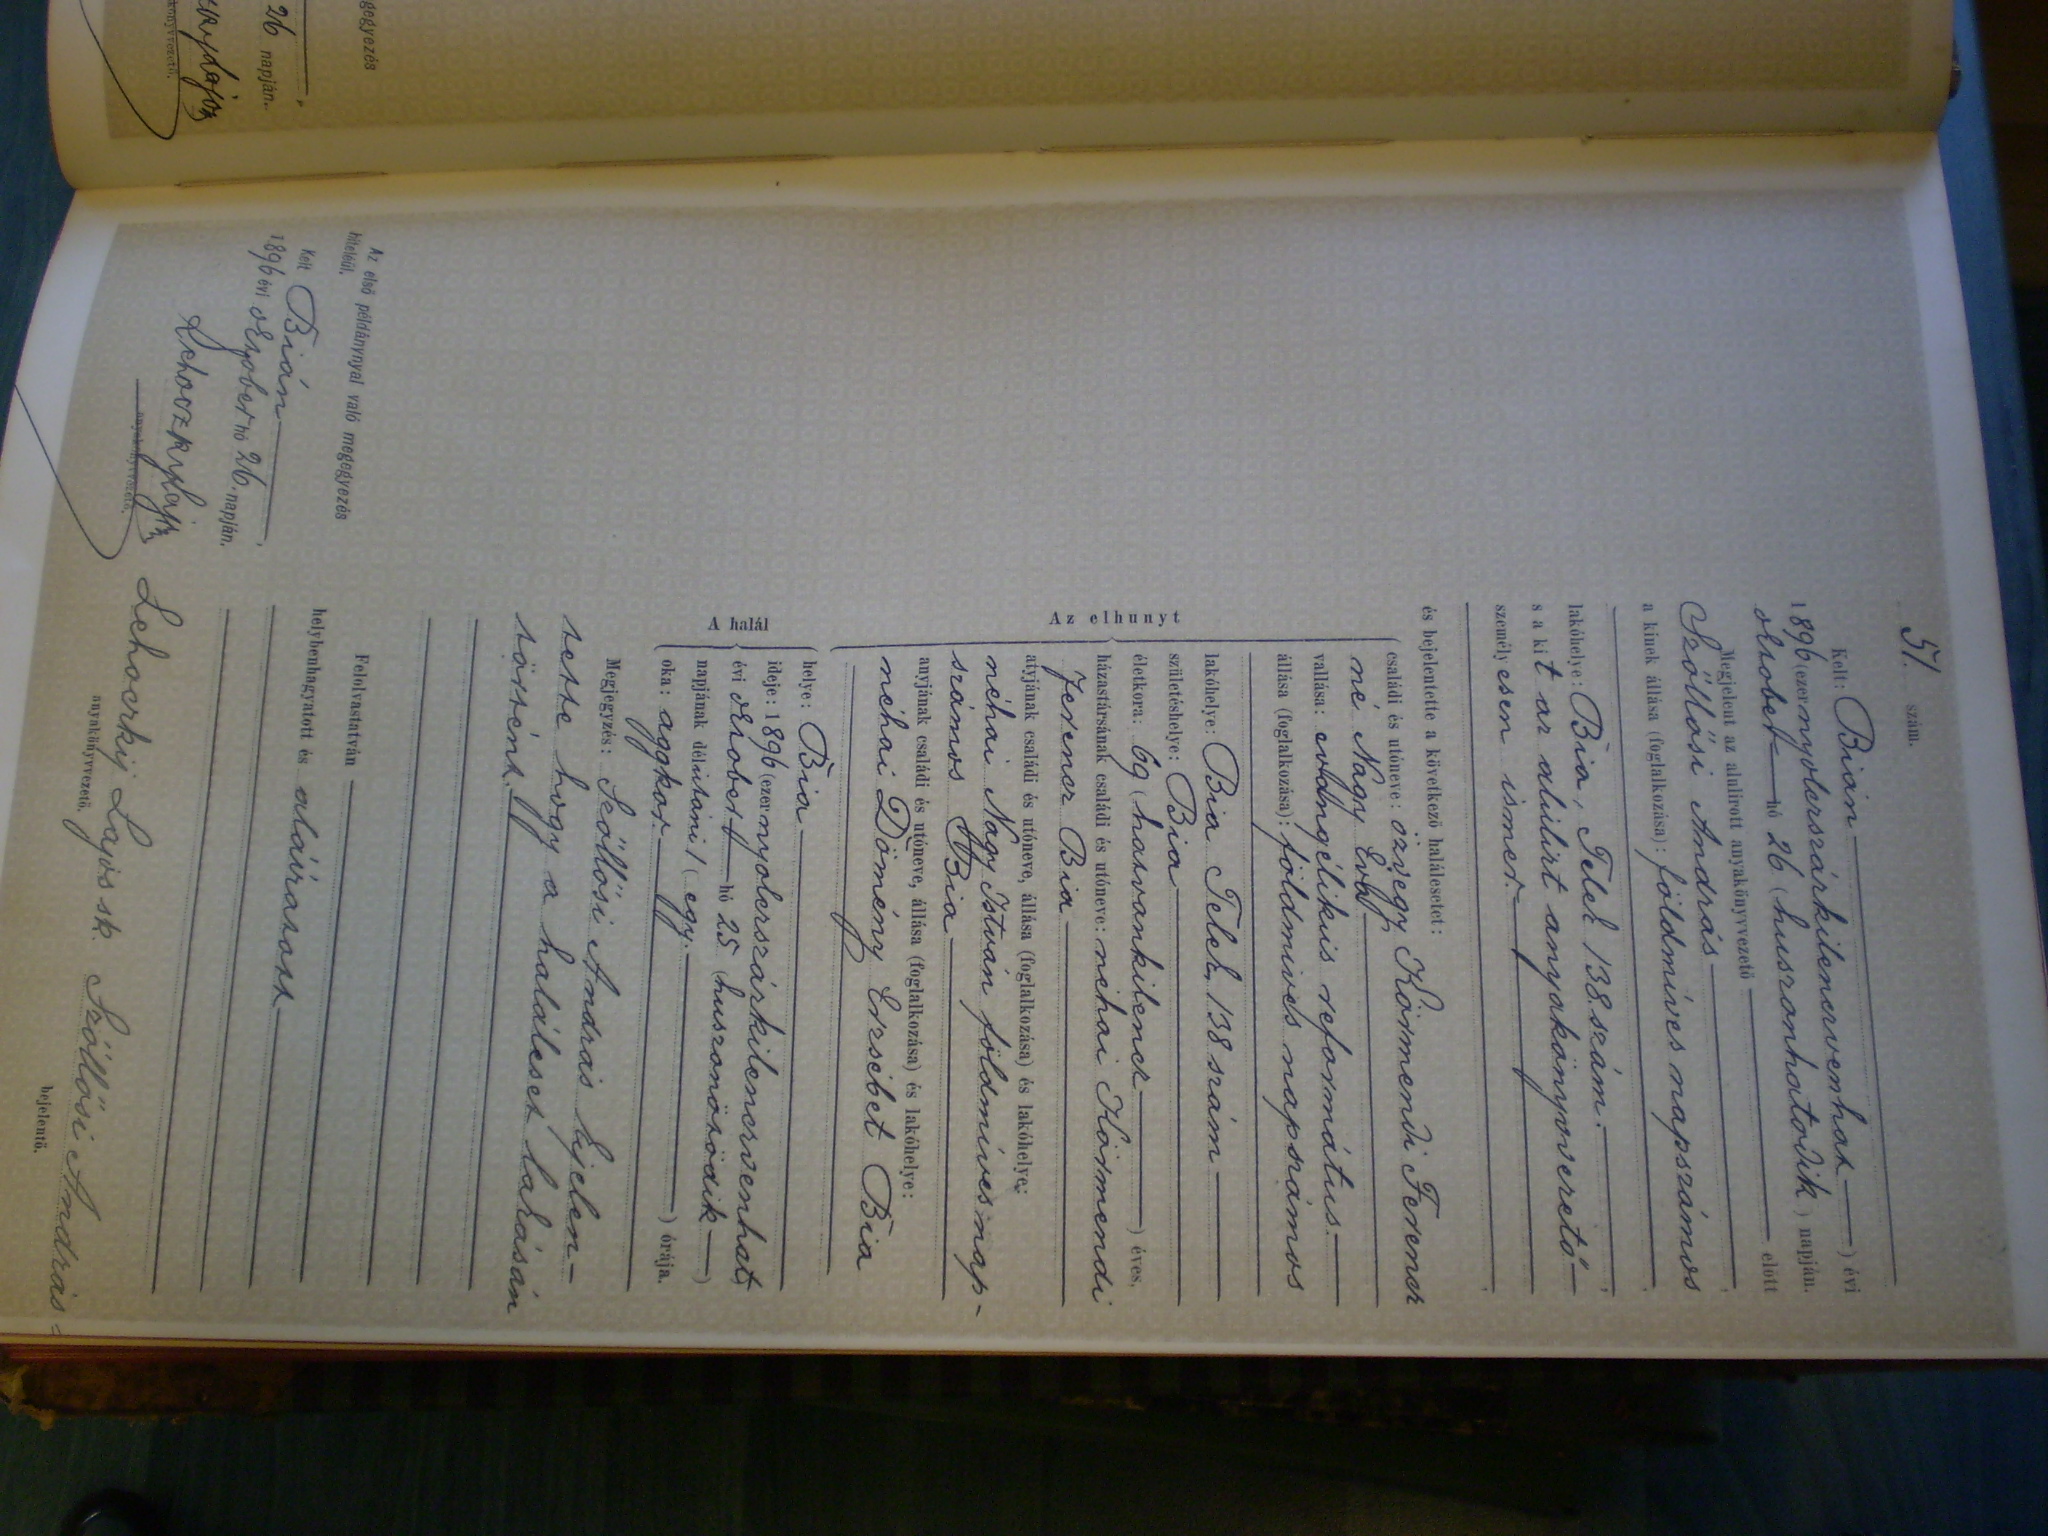 gegyezés
26 napján.
könyvvezető.
51. szám.
Kelt: Bián ) évi
1896 (ezernyolcszázkilencvenhat
október hó 26 (huszonhatodik) napján.
Megjelent az alulírott anyakönyvvezető előtt
Szőllősi András
a kinek állása (foglalkozása): földmíves napszámos
lakóhelye: Bia, Telek 138. szám.
s a kit az alulirt anyakönyvvezető
személyesen ismer.
és bejelentette a következő halálesetet:
Az elhunyt
családi és utóneve: özvegy Körmendi Ferencz
né Nagy Éva
vallása: evángélikus református.
állása (foglalkozása): földmives napszámos
lakóhelye: Bia Telek 138 szám
születéshelye: Bia
életkora: 69 (hatvankilencz) éves.
házastársának családi és utóneve: néhai Körmendi
Ferencz Bia
atyjának családi és utóneve, állása (foglalkozása) és lakóhelye:
néhai Nagy István földmíves nap-
számos Bia
anyjának családi és utóneve, állása (foglalkozása) és lakóhelye:
néhai Dömény Erzsébet Bia
A halál
helye: Bia
ideje: 1896 (ezernyolcszázkilenczvenhat)
évi október hó 25 (huszonötödik)
napjának délutáni 1 (egy) órája.
oka: aggkor
Megjegyzés: Szőllősi András kijelen-
tette hogy a haláleset lakásán
történt.
Felolvastatván
helybenhagyatott és aláíratott
Lehoczky Lajos sk. Szőllősi András
anyakönyvvezető. bejelentő.
Az első példánynyal való megegyezés
hiteléül.
Kelt Bián
1896 évi október hó 26. napján.
Lehoczky Lajos
anyakönyvvezető.